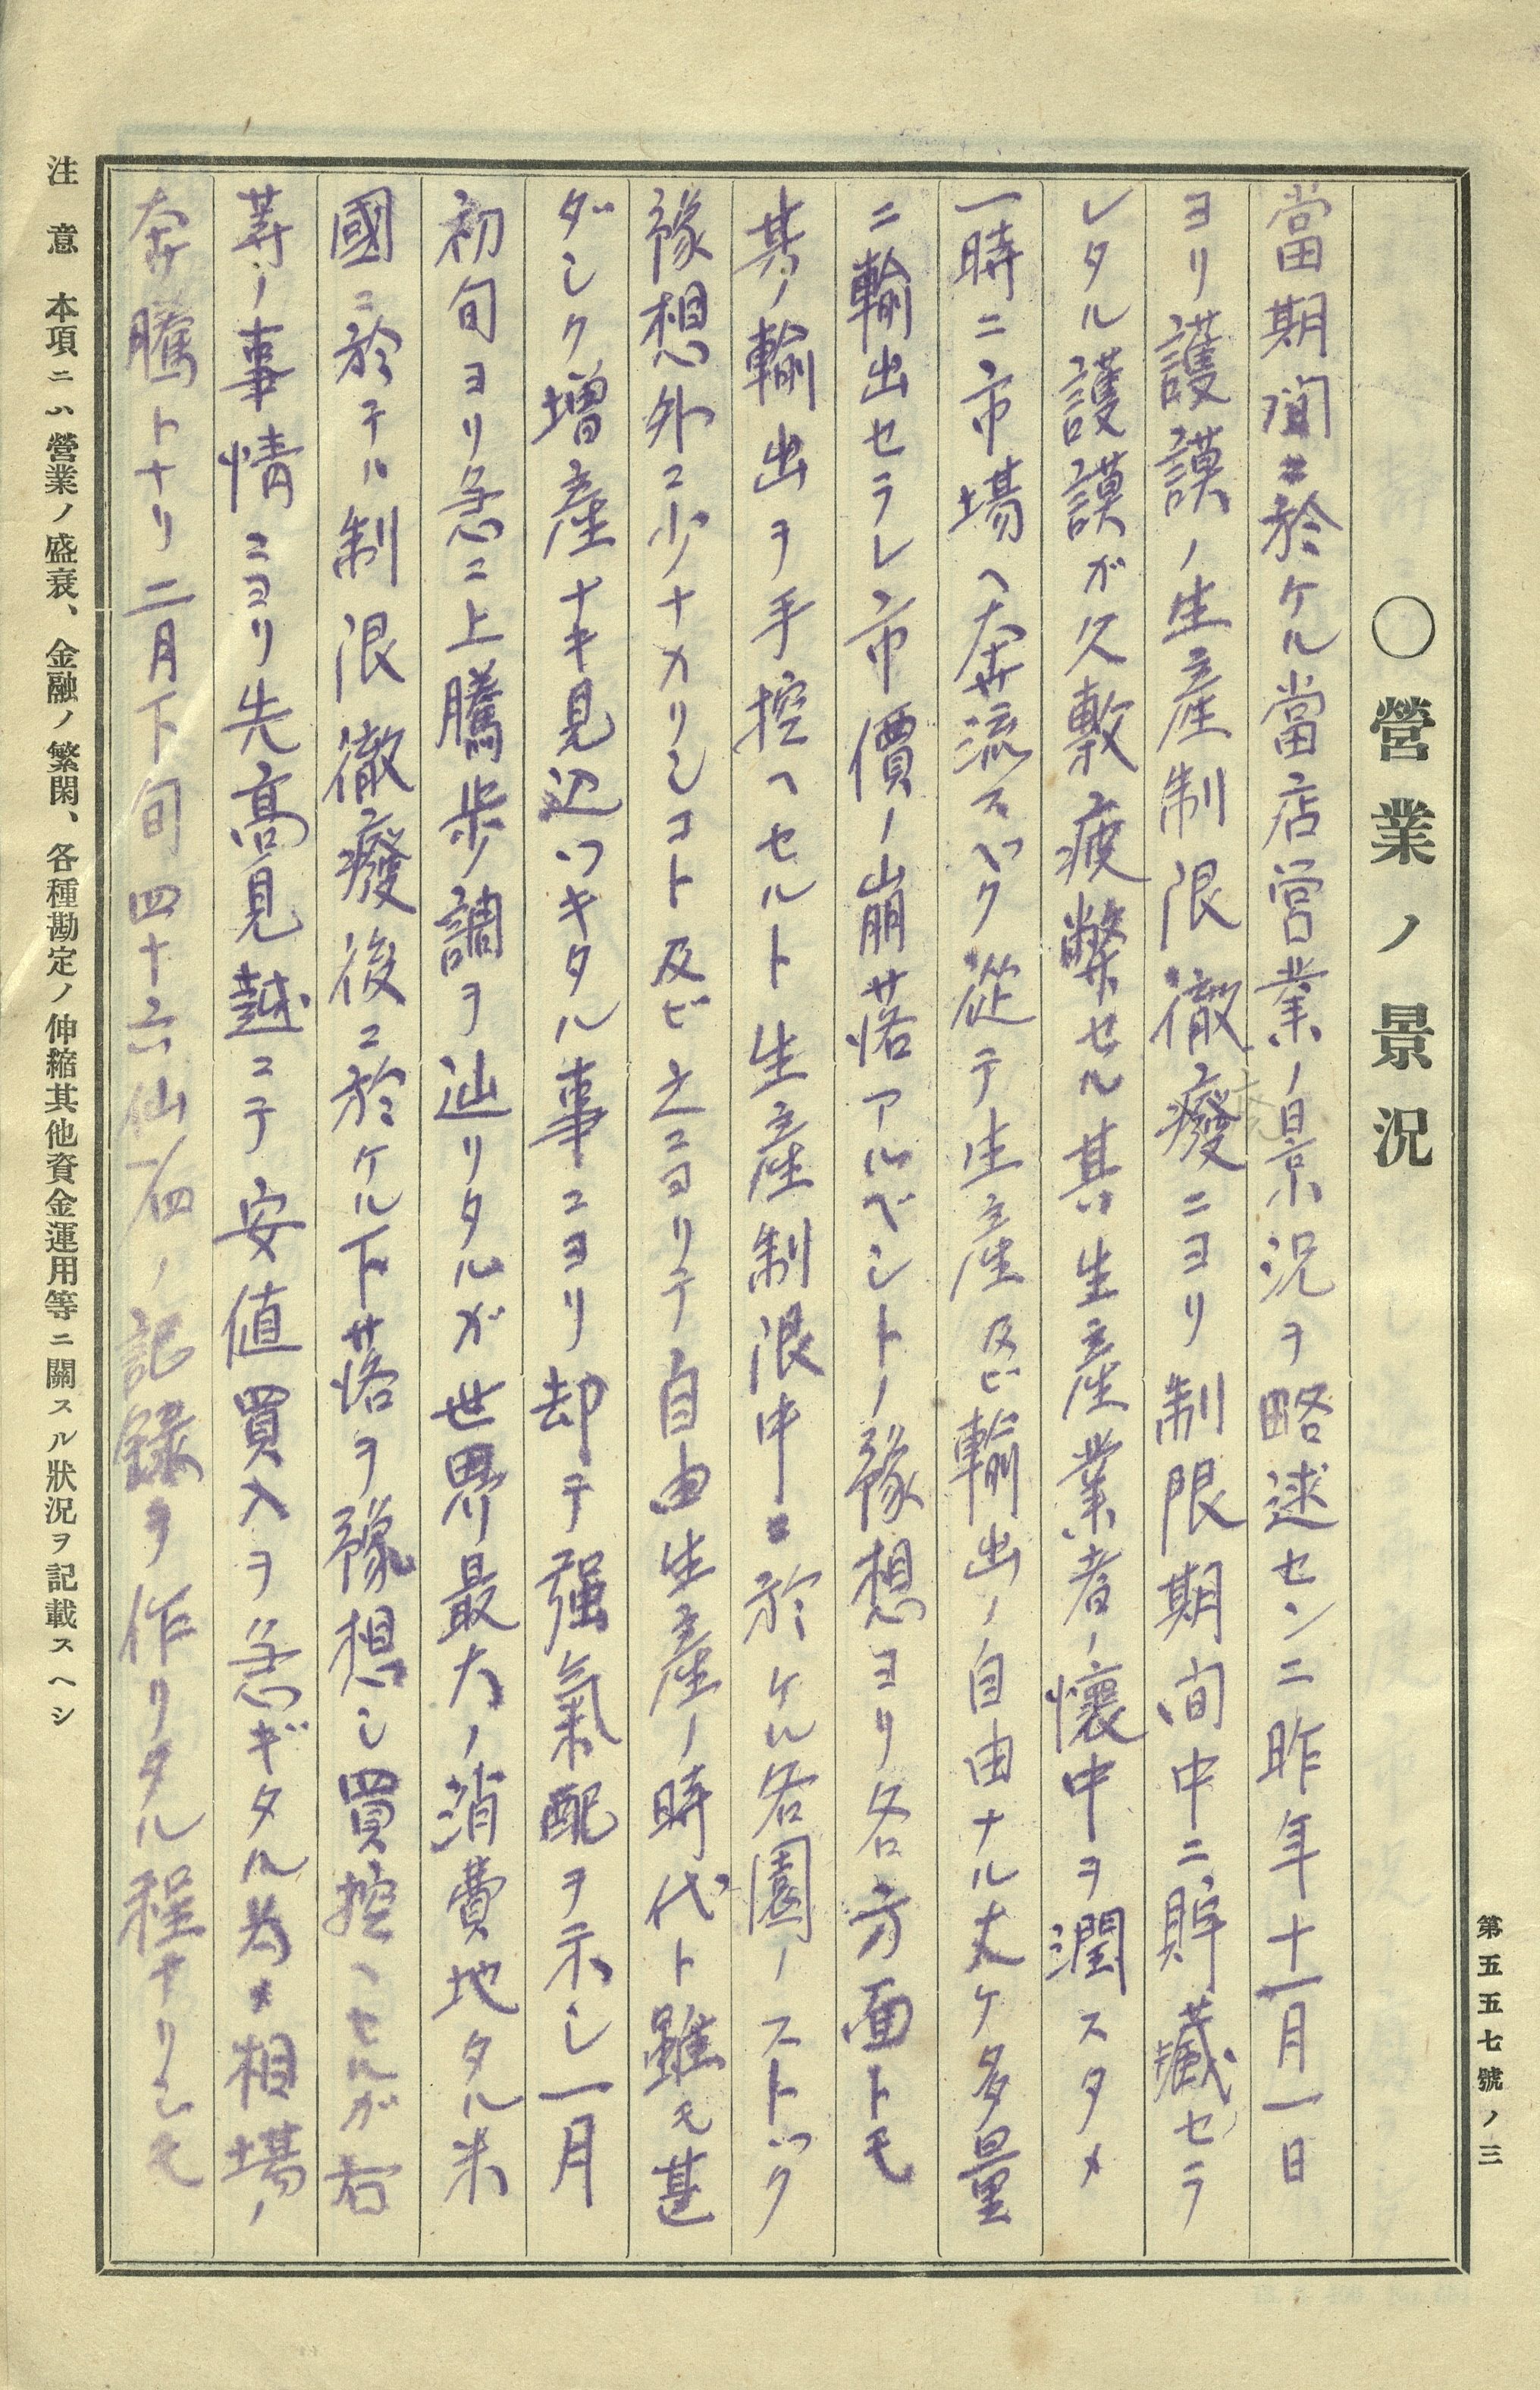 第五五七號ノ三
〇營業ノ景況
當期間ニ於ケル當店営業ノ景況ヲ略述センニ昨年十一月一日
ヨリ護謨ノ生産制限徹癈ニヨリ制限期間中ニ貯藏セラ
レタル護謨ガ久敷疲弊セル其生産業者ノ懷中ヲ潤スタメ
一時ニ市場ヘ奔流スベク從テ生産及ビ輸出ノ自由ナル丈ケ多量
ニ輸出セラレ市價ノ崩落アルベシトノ豫想ヨリ各方面トモ
其ノ輸出ヲ手控ヘセルト生産制限中ニ於ケル各園ノストック
豫想外ニ少ナカリシコト及ビ之ニヨリテ自由生産ノ時代ト雖モ甚
ダシク増産ナキ見込ツキタル事ニヨリ却テ强氣配ヲ示シ一月
初旬ヨリ急ニ上騰歩調ヲ辿リタルガ世界最大ノ消費地タル米
國ニ於テハ制限徹癈後ニ於ケル下落ヲ豫想シ買控ヘセルガ右
等ノ事情ニヨリ先高見越ニテ安値買入ヲ急ギタル為メ相場ノ
奔騰トナリ二月下旬四十六仙1/4ノ記録ヲ作リタル程ナリシモ
注意 本項ニハ營業ノ盛衰、金融ノ繁閑、各種勘定ノ伸縮其他資金運用等ニ關スル狀況ヲ記載スヘシ